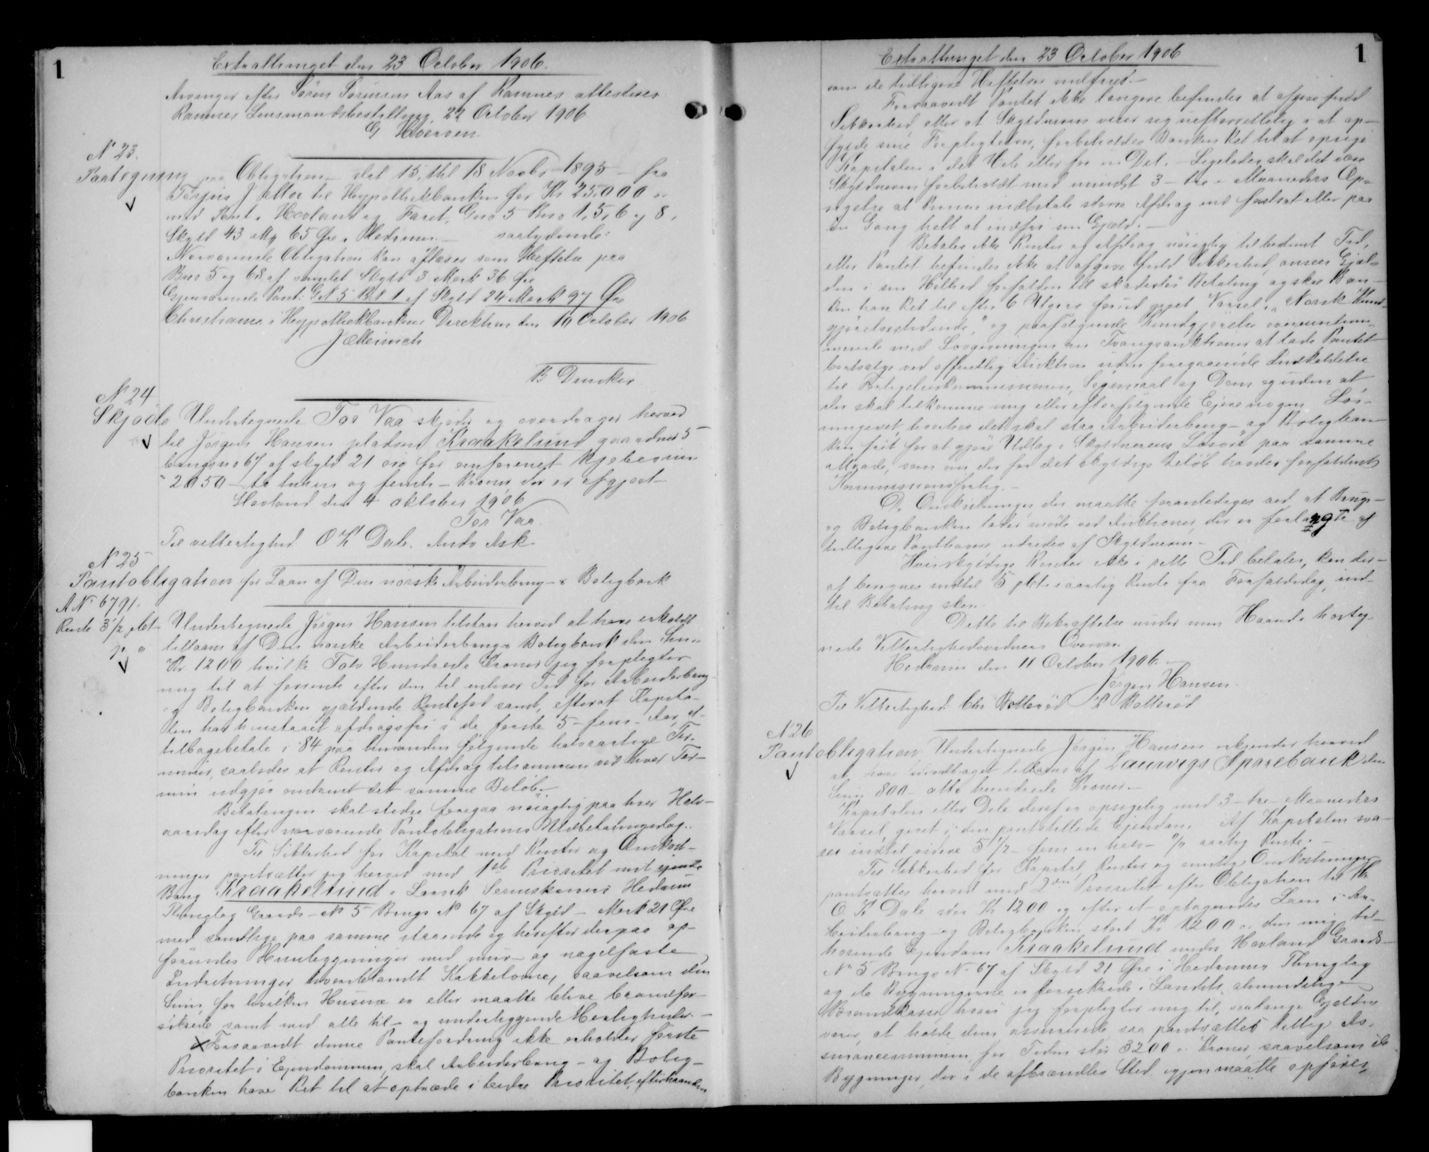 1
Extrattinget den 23 October 1906.
Arvinger efter Sörine Sörensen Aas af Ramnes attesteres
Ramnes Lensmandsbestilling, 22 October 1906
G Iversen
No 23.
Paategning paa Obligation dat 15, thl 18 Novbr 1895 fra
til Hypothekbanken for Kr 25,000
med Pant i Hovland og Faret, Gno 5 Bno 1, 5, 6 og 8,
Skyld 43 Mk 65 Øre i Hedrum saalydende:
Nærværende Obligation kan aflæses som Heftelse paa
Bno 5 og 68 af samlet Skyld 3 Mark 36 Øre
Gjenværende Pant: G.No 5 B.No 1 af Skyld 24 Mark 97 Øre
Christiania i Hypothekbankens Direktion den 19 October 1906
B Dunker
No 24
Skjöde Undertegnede Tor Vaa skjöder og overdrager herved
til Jörgen Hansen pladsen Kraakelund gaardsno 5
brugsno 67 af skyld 21 øre for omforenet kjøbesum
2050 - to tusen og femti - Kroner der er afgjort
Hovland den 4 oktober 1906
Tor Vaa.
Til vitterlighed O K Dale. Anders Ask.
No 25
Pantobligation for Laan af Den norske Arbeiderbrug- & Boligbank
A No 6791.
Rente 3 1/2 pCt p a
Undertegnede Jörgen Hansen tilstaar herved at have erholdt
tillaans af Den norske Arbeiderbrug- & Boligbank den Sum
Kr 1200 hvilke Tolv Hundrede Kroner jeg forpligter
mig til at forrente efter den til enhver Tid for Arbeiderbrug-
og Boligbanken gjældende Rentefod samt, efterat Kapita-
len har henstaaet afdragsfri i de første 5 - fem - Aar, at
tilbagebetale i 84 paa hinanden følgende halvaarlige Ter-
miner, saaledes at Renter og Afdrag tilsammen ved hver Ter-
min udgjør omtrent det samme Beløb.
Betalingen skal stedse foregaa nöiagtig paa hver Halv-
aarsdag efter nærværende Pantobligations Udbetalingsdag.
Til Sikkerhed for Kapital med Renter og Omkost-
ninger pantsætter jeg herved med 1ste Prioritet mit eiende
Brug Kraakelund i Larvik Sorenskriveri Hedrum
Thinglag Gaards No 5 Brugs No 67 af Skyld - Mark 21 Øre
med samtlige paa samme staaende og herefter derpaa op-
førendes Husbygninger med mur- og nagelfaste
Indretninger hvoriblandt Kakkelovne, saavelsom den
Sum, for hvilken Husene er eller maatte blive brandfor-
sikrede samt med alle til- og underliggende Herligheder. -
Forsaavidt denne Pantefordring ikke erholder første
Prioritet i Eiendommen, skal Arbeiderbrug- og Bolig-
banken have Ret til at optræde i bedre Prioritet, efterhaanden
1
Extrattinget den 23 October 1906
som de tidligere Heftelser indfries. -
Forsaavidt Pantet ikke længere befindes at afgive fuld
Sikkerhed eller at Skyldneren viser sig uefterrettelig i at op-
fylde sine Forpligtelser, forbeholdes Banken Ret til at opsige
Kapitalen i det Hele eller for en Del. - Ligeledes skal det være
Skyldneren forbeholdt med mindst 3 - tre - Maaneders Op-
sigelse at kunne indbetale større Afdrag end fastsat eller paa
en Gang helt at indfri sin Gjæld. -
Betales ikke Renter og Afdrag nöiagtig til bestemt Tid,
eller Pantet befindes ikke at afgive fuld Sikkerhed, ansees Gjæl-
den i sin Helhed forfalden til skadeslös Betaling og skal Ban-
ken have Ret til efter 6 Ugers forud gjort Varsel i "Norsk Kund-
gjørelsestidende", og paafølgende Kundgjørelse overensstem-
mende med Lovgivningen om Tvangsauktioner at lade Pantet
bortsælge ved offentlig Auktion uden foregaaende Indkaldelse
til Forligelseskommissionen, Søgsmaal og Dom og uden at
der skal tilkomme mig eller efterfølgende Eiere nogen Løs-
ningsret, hvorhos det skal staa Arbeiderbrug- og Boligban-
ken frit for at gjøre Udlæg i Skyldnerens Løsøre paa samme
Maade, som om der for det skyldige Beløb havdes forfaldent
Kommissionsforlig. -
De Omkostninger der maatte foranlediges ved at Brug-
og Boligbanken lader møde ved Auktioner, der er forlangte af
tidligere Panthavere udredes af Skyldneren. -
Hvis skyldige Renter ikke i rette Tid betales, kan der-
af beregnes indtil 5 pCt aarlig Rente fra Forfaldsdag ind-
til Betaling sker.
Dette til Bekræftelse under min Haand i hosteg-
nede Vitterlighedsvidners Overvær.
Hedrum den 11 October 1906.
Jörgen Hansen.
Til Vitterlighed: Chr Bøtterød H Bøtterød
No 26
Pantobligation Undertegnede Jörgen Hansen erkjender herved
at have modtaget tillaans af Laurvigs Sparebank den
Sum 800 - otte hundrede Kroner. -
Kapitalen eller Dele deraf er opsigelig med 3 - tre - Maaneders
Varsel, givet i den pantstillede Eiendom. Af Kapitalen sva-
res indtil videre 5 1/2 - fem en halv - % aarlig Rente. -
Til Sikkerhed for Kapital Renter og samtlige Omkostninger
pantsættes herved med 3die Prioritet efter Obligation til Hr
O K Dale stor Kr 1200 og efter et optagendes Laan i Ar-
beiderbrug- og Boligbanken stort Kr 1200 den mig til-
hørende Eiendom Kraakelund under Hovland Gaards-
No 5 Brugs No 67 af Skyld 21 Øre i Hedrum Thinglag
og de Bygningerne er forsikrede i Landets almindelige
Brandkasse hvori jeg forpligter mig til, saalænge Gjælden
varer, at holde dem assurerede saa pantsættes tillige As-
surancesummen for Tiden stor 3200 Kroner saavelsom de
Bygninger, der i de afbrændtes Sted igjen maatte opføres